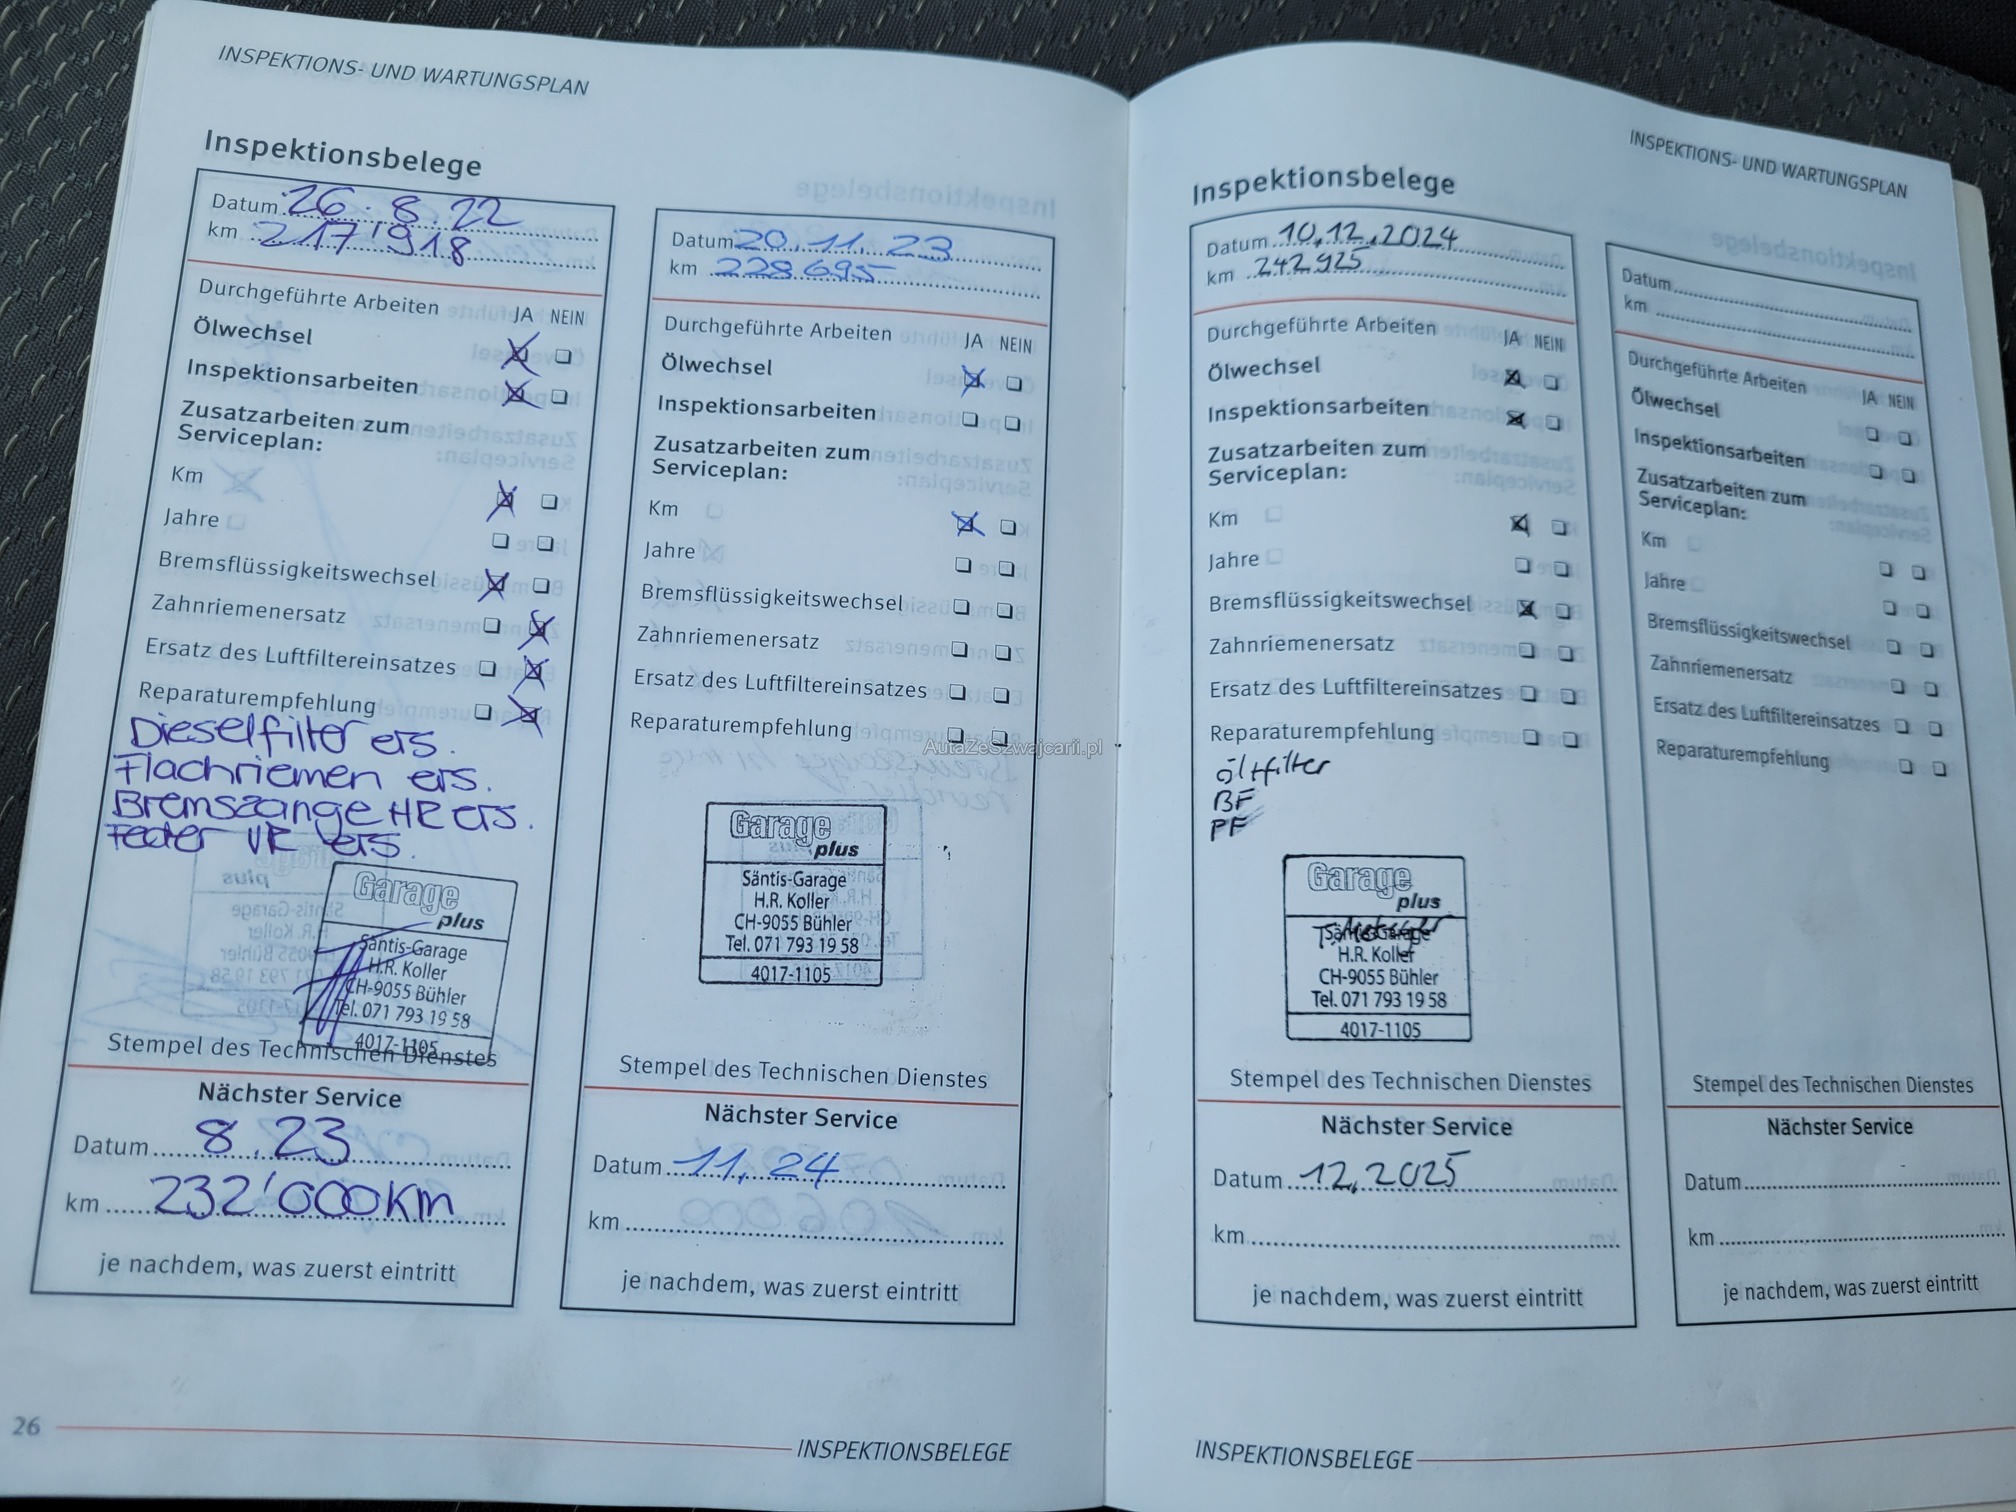 INSPEKTIONS- UND WARTUNGSPLAN
Inspektionsbelege
Datum 26.8.22
km 217'918
Durchgeführte Arbeiten JA NEIN
Ölwechsel
Inspektionsarbeiten
Zusatzarbeiten zum
Serviceplan:
Km
Jahre
Bremsflüssigkeitswechsel
Zahnriemenersatz
Ersatz des Luftfiltereinsatzes
Reparaturempfehlung
Dieselfilter ers.
Flachriemen ers.
Bremszange HR ers.
Feder VR ers.
Garage
plus
Säntis-Garage
H.R. Koller
CH-9055 Bühler
Tel. 071 793 19 58
4017-1105
Stempel des Technischen Dienstes
Nächster Service
Datum 8.23
km 232'000km
je nachdem, was zuerst eintritt
Datum 20.11.23
km 228695
Durchgeführte Arbeiten JA NEIN
Ölwechsel
Inspektionsarbeiten
Zusatzarbeiten zum
Serviceplan:
Km
Jahre
Bremsflüssigkeitswechsel
Zahnriemenersatz
Ersatz des Luftfiltereinsatzes
Reparaturempfehlung
AutaZeSzwajcarii.pl
Garage
plus
Säntis-Garage
H.R. Koller
CH-9055 Bühler
Tel. 071 793 19 58
4017-1105
Stempel des Technischen Dienstes
Nächster Service
Datum 11.24
km
je nachdem, was zuerst eintritt
26
INSPEKTIONSBELEGE
INSPEKTIONS- UND WARTUNGSPLAN
Inspektionsbelege
Datum 10.12.2024
km 242925
Durchgeführte Arbeiten JA NEIN
Ölwechsel
Inspektionsarbeiten
Zusatzarbeiten zum
Serviceplan:
Km
Jahre
Bremsflüssigkeitswechsel
Zahnriemenersatz
Ersatz des Luftfiltereinsatzes
Reparaturempfehlung
Ölfilter
BF
PF
Garage
plus
Säntis-Garage
H.R. Koller
CH-9055 Bühler
Tel. 071 793 19 58
4017-1105
Stempel des Technischen Dienstes
Nächster Service
Datum 12.2025
km
je nachdem, was zuerst eintritt
Datum
km
Durchgeführte Arbeiten JA NEIN
Ölwechsel
Inspektionsarbeiten
Zusatzarbeiten zum
Serviceplan:
Km
Jahre
Bremsflüssigkeitswechsel
Zahnriemenersatz
Ersatz des Luftfiltereinsatzes
Reparaturempfehlung
Stempel des Technischen Dienstes
Nächster Service
Datum
km
je nachdem, was zuerst eintritt
INSPEKTIONSBELEGE